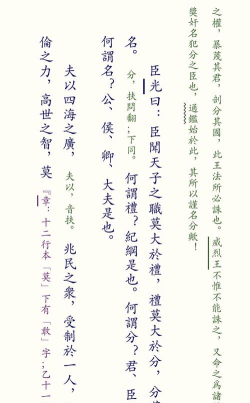 之權，暴蔑其君，剖分其國，此王法所必誅也。威烈王不惟不能誅之，又命之爲諸
獎奸名犯分之臣也，通鑑始於此，其所以謹名分歟！
臣光曰：臣聞天子之職莫大於禮，禮莫大於分，分
分，扶問翻；下同。何謂禮？紀綱是也。何謂分？君、臣
名。
何謂名？公、侯、卿、大夫是也。
夫以四海之廣，夫以，音扶。兆民之衆，受制於一人，
倫之力，高世之智，莫『章：十二行本「莫」下有「敢」字；乙十一